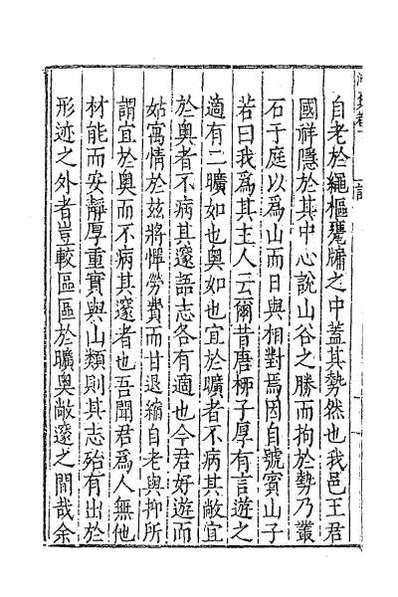 自老於繩樞甕牖之中蓋其勢然也我邑王君
國祥隱於其中心說山谷之勝而拘於勢乃叢
石于庭以爲山而日與相對焉因自號賓山子
若曰我爲其主人云爾昔唐柳子厚有言遊之
適有二曠如也奥如也宜於曠者不病其敞宜
於奥者不病其邃語志各有適也今君好遊而
姑寓情於兹將憚勞費而甘退縮自老與抑所
謂宜於奥而不病其邃者也吾聞君爲人無他
材能而安靜厚重實與山類則其志殆有出於
形迹之外者豈較區區於曠奥敞邃之間哉余